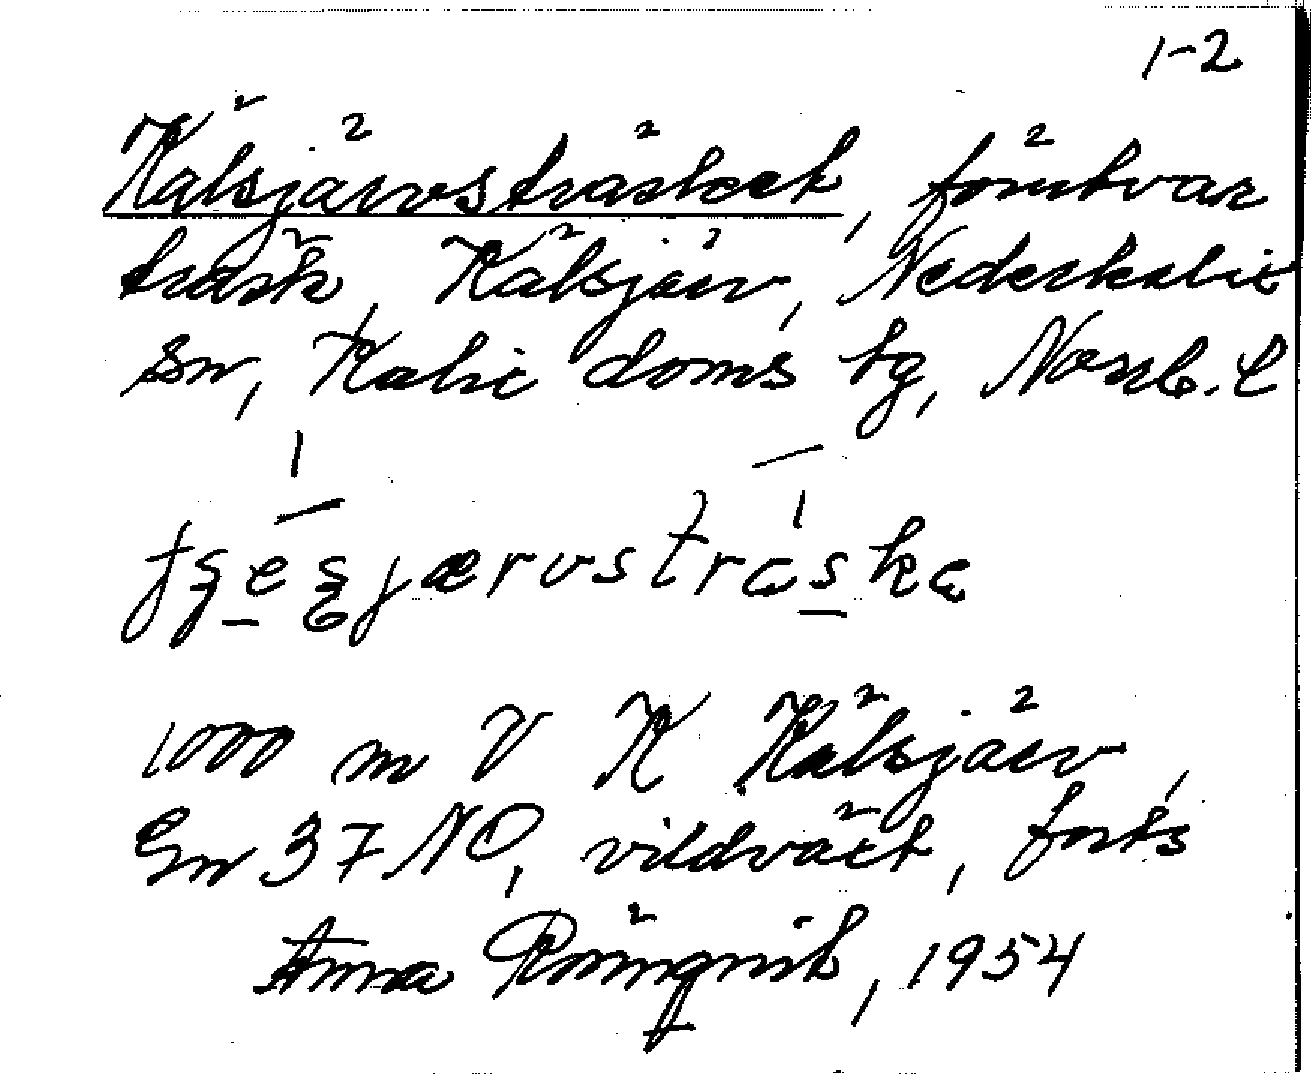 1-2
Kälsjärvsträsket, förutvar
träsk, Kälsjärv, Nederkalix
sn, Kalix doms tg, Norrb. l
1000 m V K Kälsjärv,
Gn 37 NO, vildväxt, forts
Anna Rönnqvist, 1954